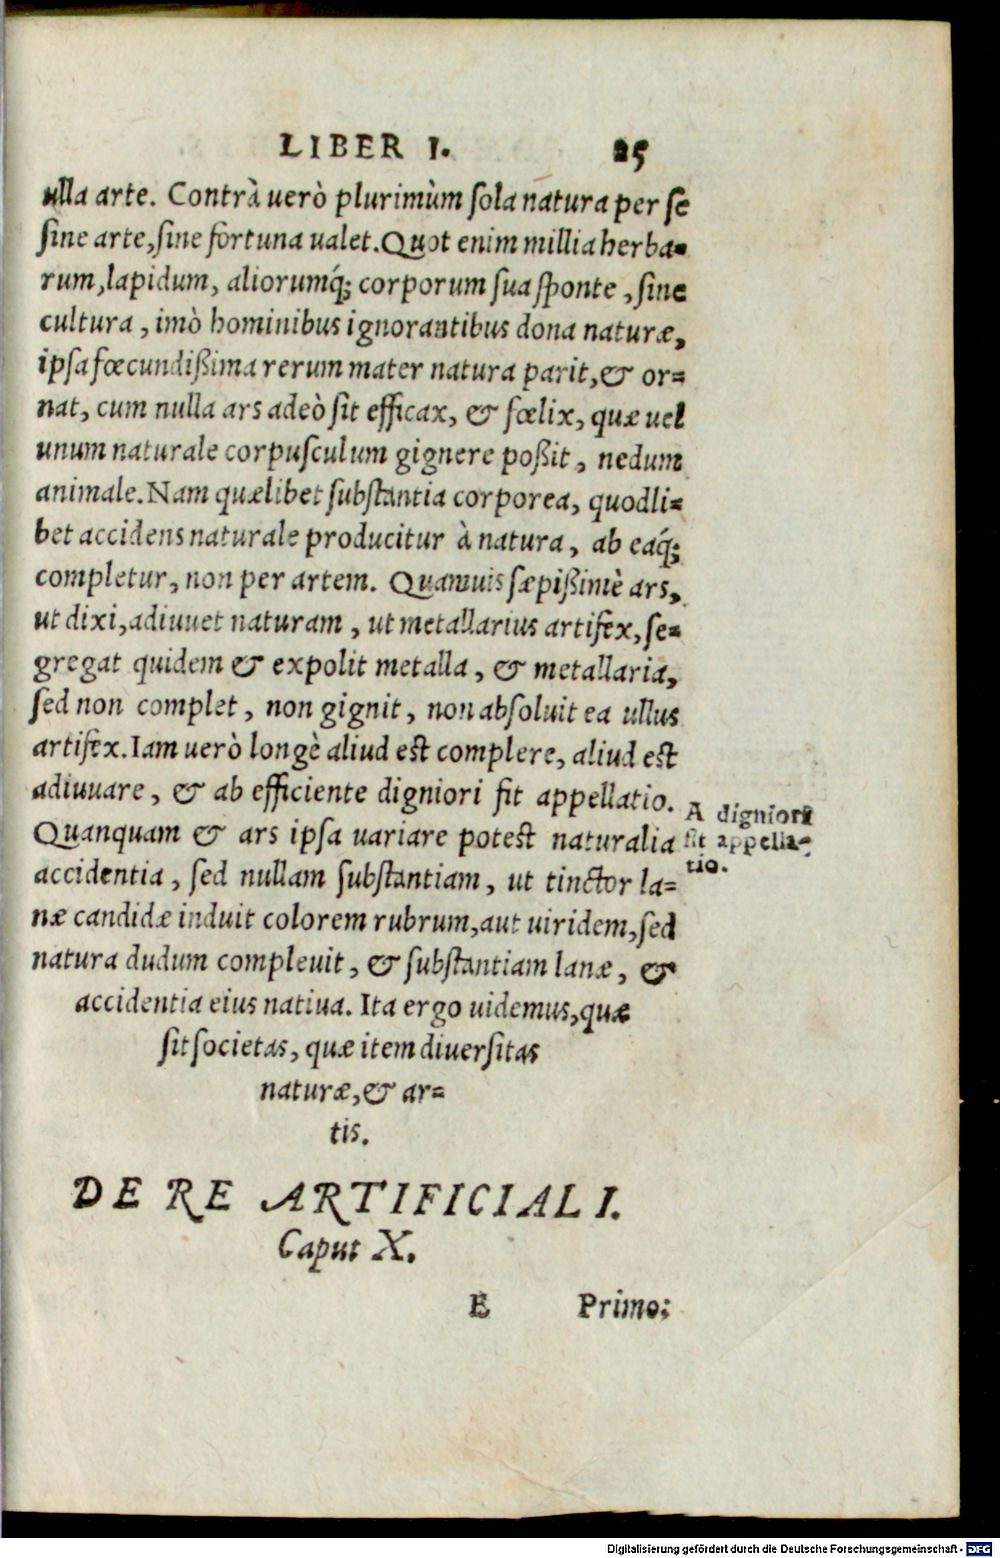 LIBER I. 25
ulla arte. Contrà uerò plurimùm ſola natura per ſe
ſine arte, ſine fortuna ualet. Quot enim millia herba-
rum, lapidum, aliorumq́; corporum sua ſponte, ſine
cultura, imò hominibus ignorantibus dona naturæ,
ipſa fœcundißima rerum mater natura parit, & or=
nat, cum nulla ars adeò ſit efficax, & fœlix, quæ uel
unum naturale corpuſculum gignere poßit, nedum
animale. Nam quælibet ſubſtantia corporea, quodli=
bet accidens naturale producitur à natura, ab eaq́;
completur, non per artem. Quamuis ſæpißimè ars,
ut dixi, adiuuet naturam, ut metallarius artifex, ſe=
gregat quidem & expolit metalla, & metallaria,
ſed non complet, non gignit, non abſoluit ea ullus
artifex. Iam uerò longè aliud eſt complere, aliud eſt
adiuuare, & ab efficiente digniori fit appellatio.
Quanquam & ars ipſa uariare poteſt naturalia
accidentia, ſed nullam ſubſtantiam, ut tinctor la=
næ candidæ induit colorem rubrum, aut uiridem, ſed
natura dudum compleuit, & ſubſtantiam lanæ, &
accidentia eius natiua. Ita ergo uidemus, quæ
ſit ſocietas, quæ item diuerſitas
naturæ, & ar=
tis.
A digniori
fit appella-
tio.
DE RE ARTIFICIALI.
Caput X.
E Primo;
Digitalisierung gefördert durch die Deutsche Forschungsgemeinschaft - DFG